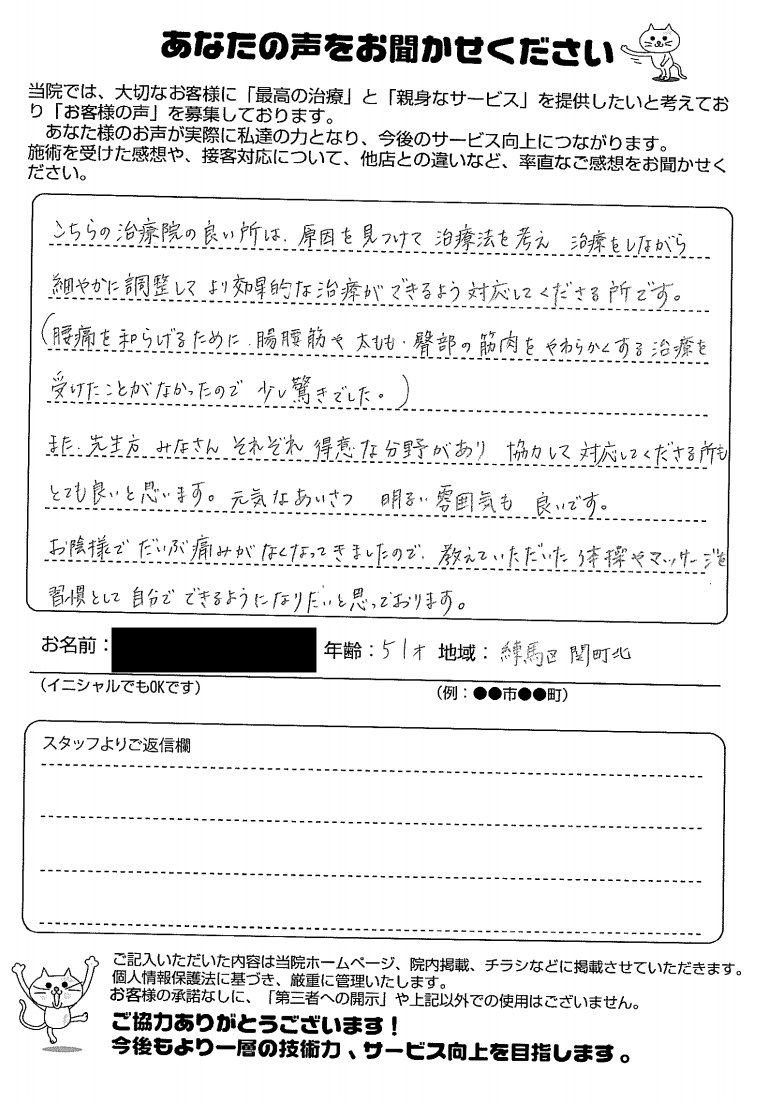 あなたの声をお聞かせください
当院では、大切なお客様に「最高の治療」と「親身なサービス」を提供したいと考えてお
り「お客様の声」を募集しております。
あなた様のお声が実際に私達の力となり、今後のサービス向上につながります。
施術を受けた感想や、接客対応について、他店との違いなど、率直なご感想をお聞かせく
ださい。
こちらの治療院の良い所は、原因を見つけて 治療法を考え 治療をしながら
細やかに調整して より効果的な治療ができるよう対応してくださる所です。
(腰痛を和らげるために、腸腰筋や太もも・臀部の筋肉をやわらかくする治療を
受けたことがなかったので 少し驚きでした。)
また、先生方 みなさん それぞれ 得意な分野があり 協力して対応してくださる所も
とても良いと思います。元気なあいさつ 明るい雰囲気も 良いです。
お陰様で だいぶ痛みがなくなってきましたので、教えていただいた体操やマッサージを
習慣として 自分で できるようになりたいと思っております。
お名前： 年齢：51才 地域：練馬区 関町北
(イニシャルでもOKです) (例：●●市●●町)
スタッフよりご返信欄
ご記入いただいた内容は当院ホームページ、院内掲載、チラシなどに掲載させていただきます。
個人情報保護法に基づき、厳重に管理いたします。
お客様の承諾なしに、「第三者への開示」や上記以外での使用はございません。
ご協力ありがとうございます！
今後もより一層の技術力、サービス向上を目指します。